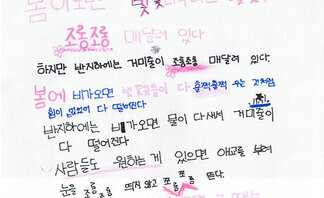 봄이오면 빛
조롱조롱 매달려 있다
하지만 반지하에는 거미줄이 조롱조롱 매달려 있다.
봄에 비가오면 빛 꽃잎들이 다 훌쩍훌쩍 우는 것처럼
힘이 없어 다 떨어진다
반지하에는 비가오면 물이 다 새서 거미줄이
다 떨어진다
사람들도 원하는 게 있으면 애교를 부려
눈을 조롱조롱 뜨지 않고 쪼롱쪼롱 뜬다.